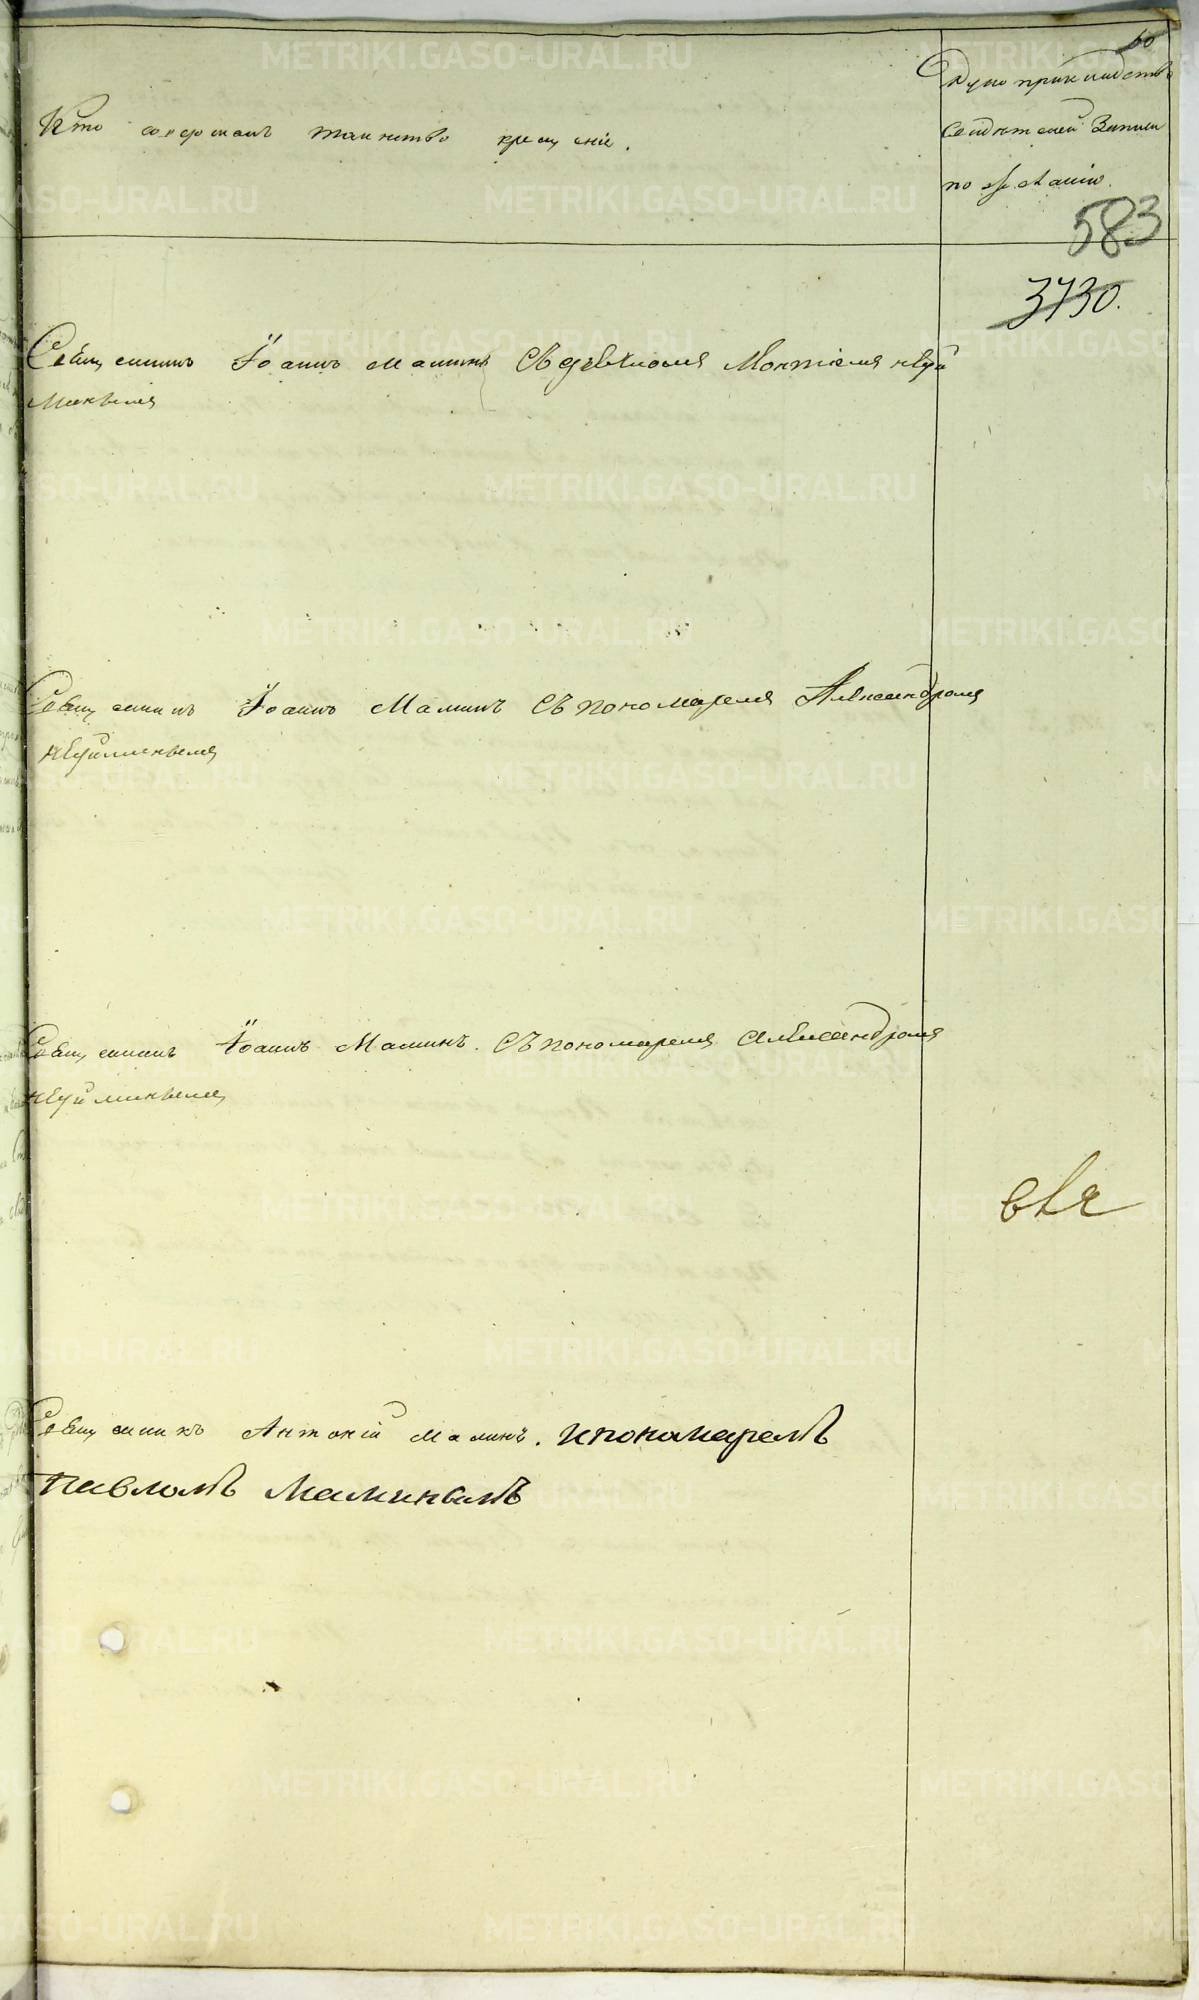 60
Кто совершалъ таинство крещенія.
Рукоприкладство
свидѣтелей записи
по желанію.
583
3730.
Священникъ Іоаннъ Маминъ съ дьячкомъ
Священникъ Іоаннъ Маминъ съ пономаремъ Александромъ
Кѣуйминымъ
Священникъ Іоаннъ Маминъ. съ пономаремъ Александромъ
Кѣуйминымъ
Священникъ Антоній Маминъ. и пономаремъ
Павломъ Маминымъ
METRIKI.GASO-URAL.RU